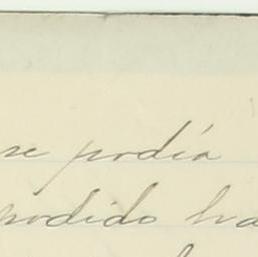 se podía
podido ha